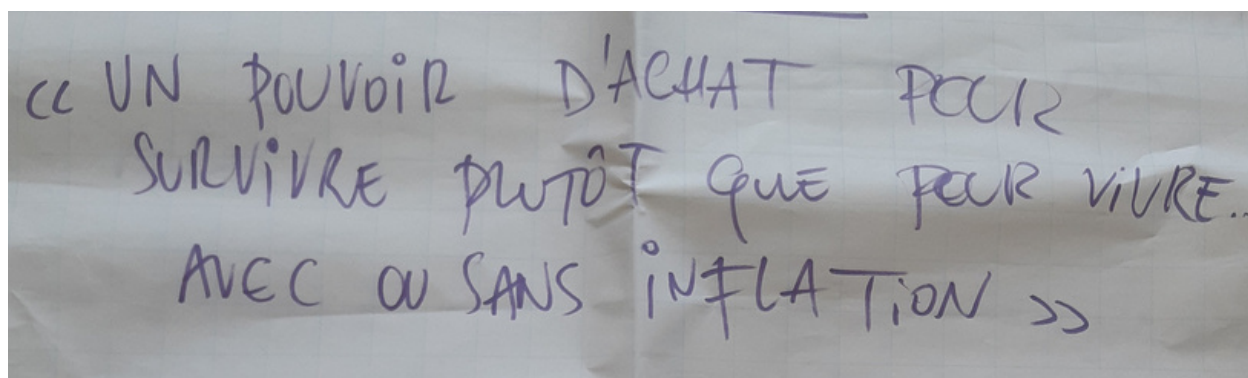 « UN POUVOIR D'ACHAT POUR
SURVIVRE PLUTÔT QUE POUR VIVRE..
AVEC OU SANS INFLATION »